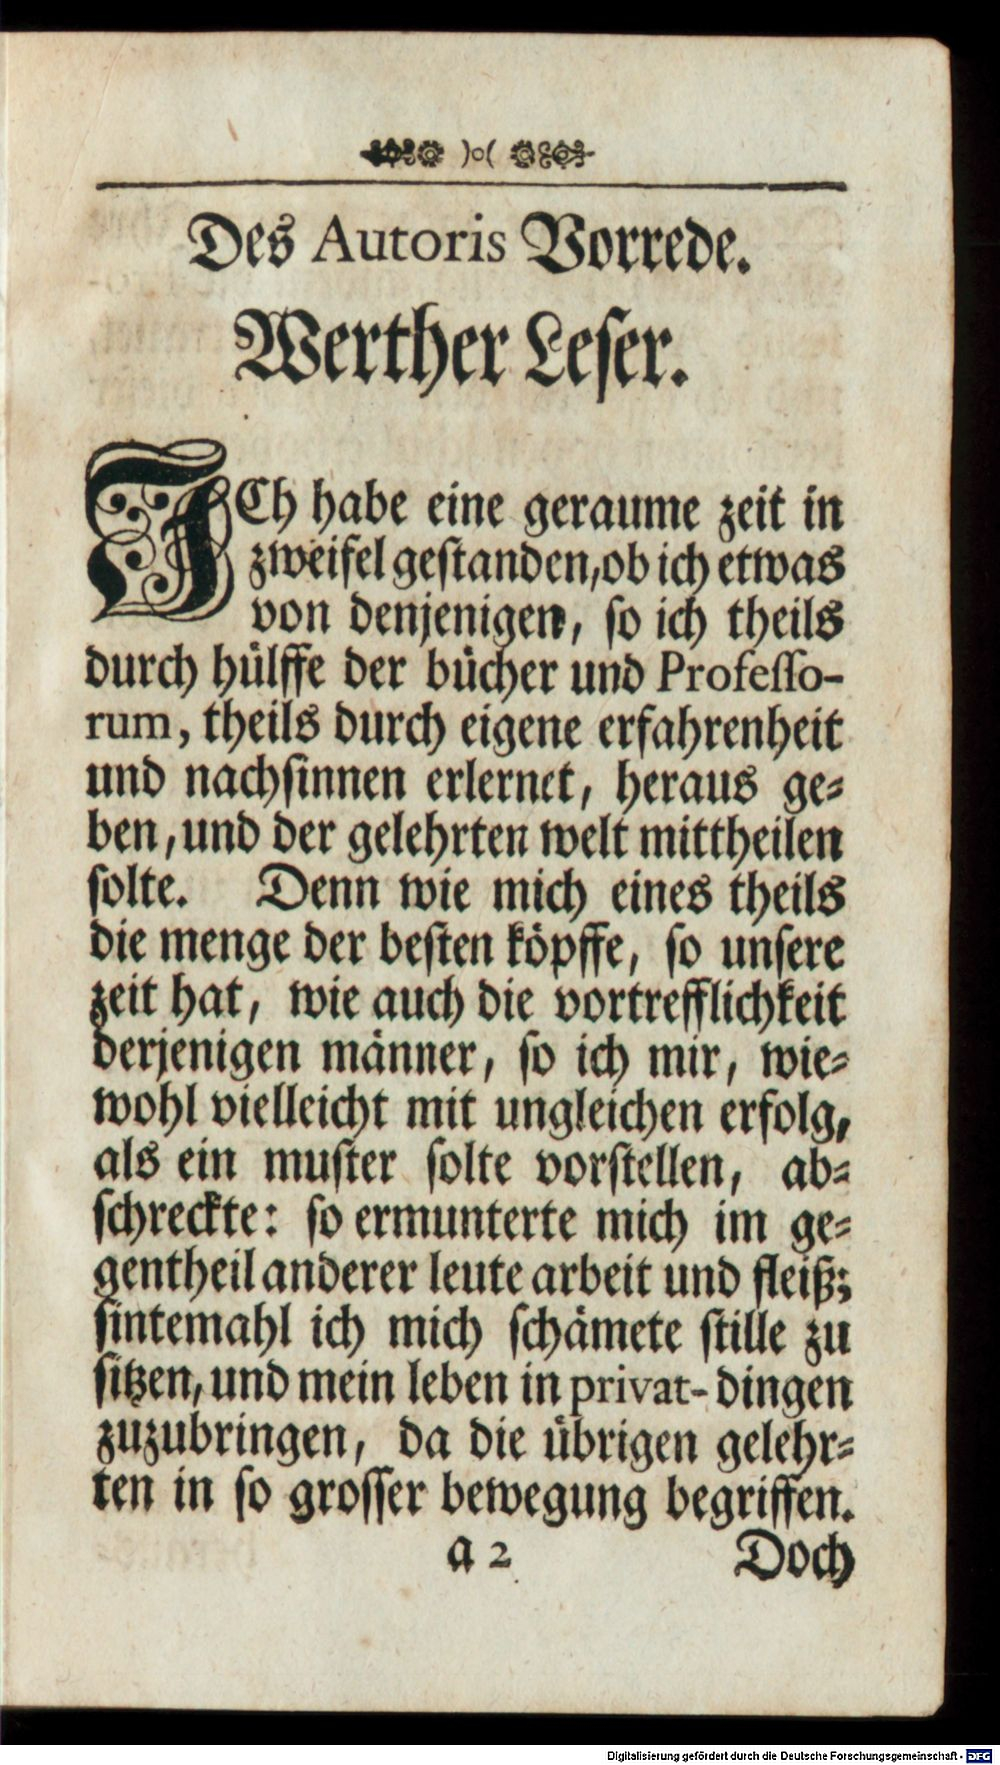 )o(
Des Autoris Vorrede.
Werther Leſer.
ICh habe eine geraume zeit in
zweifel geſtanden, ob ich etwas
von denjenigen, ſo ich theils
durch hülffe der bücher und Profeſſo-
rum, theils durch eigene erfahrenheit
und nachſinnen erlernet, heraus ge-
ben, und der gelehrten welt mittheilen
ſolte. Denn wie mich eines theils
die menge der beſten köpffe, ſo unſere
zeit hat, wie auch die vortrefflichkeit
derjenigen männer, ſo ich mir, wie-
wohl vielleicht mit ungleichen erfolg,
als ein muſter ſolte vorſtellen, ab-
ſchreckte: ſo ermunterte mich im ge-
gentheil anderer leute arbeit und fleiß;
ſintemahl ich mich ſchämete ſtille zu
ſitzen, und mein leben in privat-dingen
zuzubringen, da die übrigen gelehr-
ten in ſo groſſer bewegung begriffen.
a 2 Doch
Digitalisierung gefördert durch die Deutsche Forschungsgemeinschaft - DFG